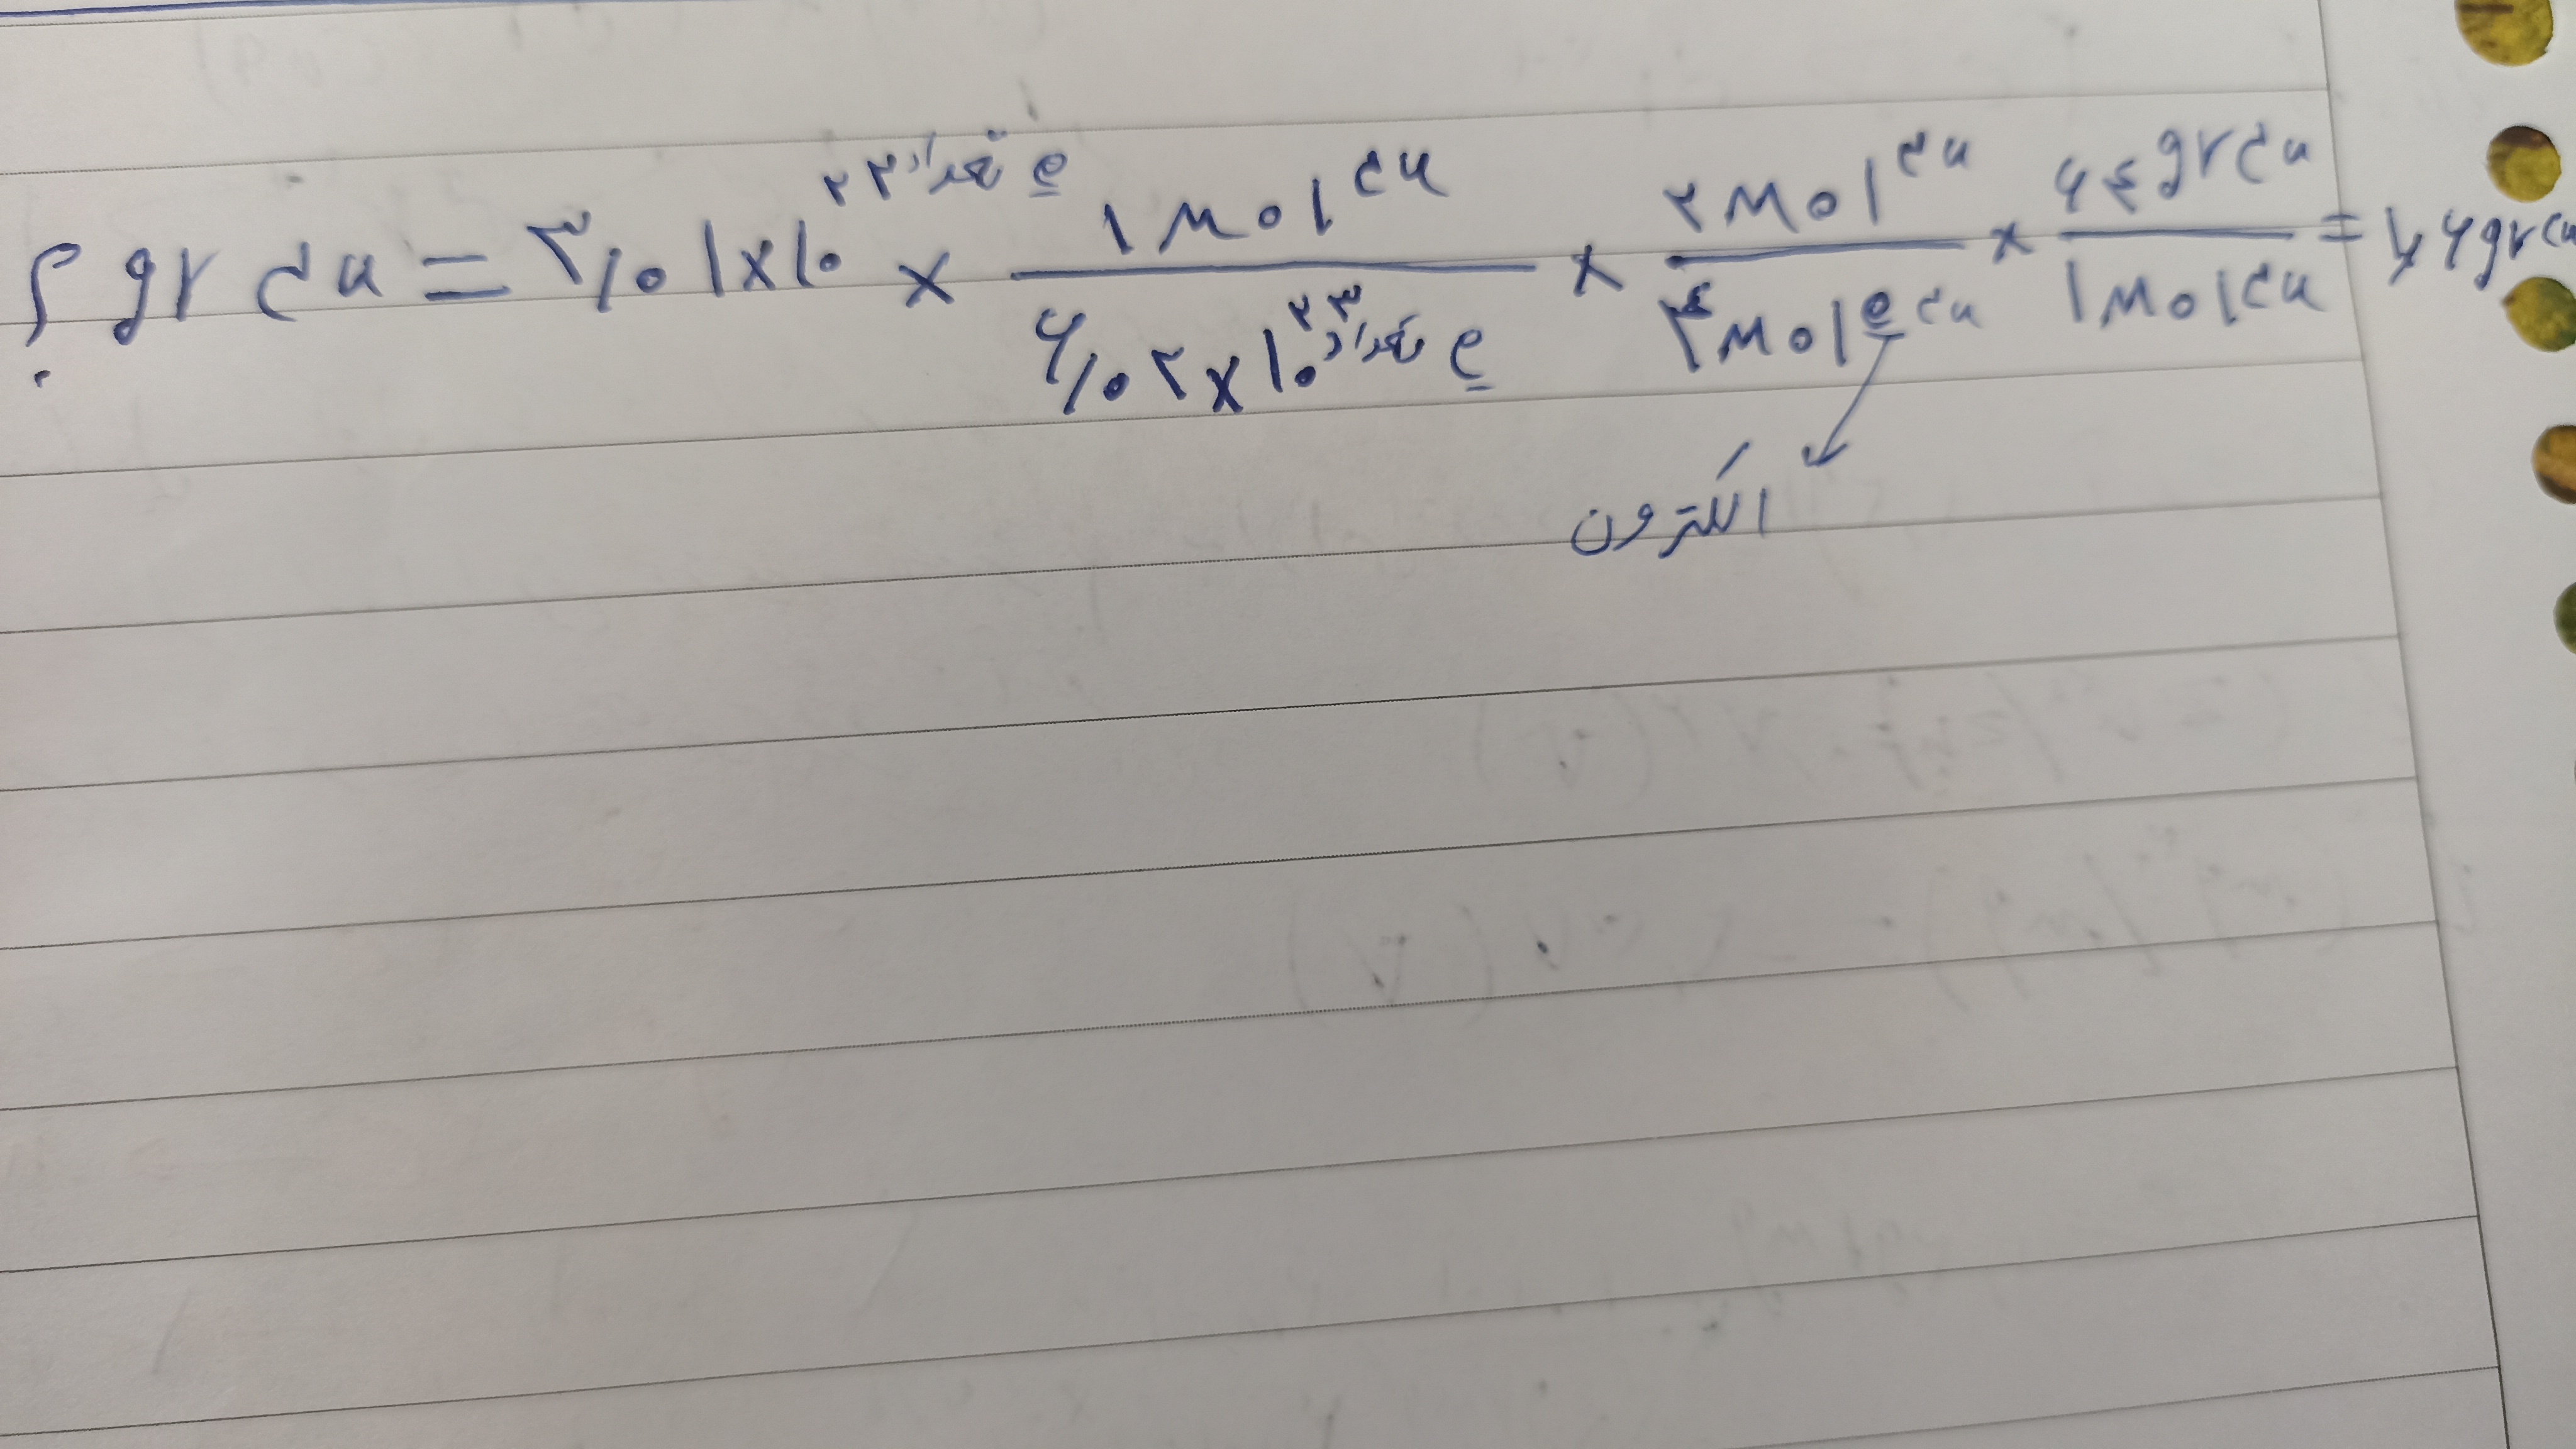 ؟ gr cu = ۳/۰۱×۱۰^۲۲ تعداد e × ۱ mol cu / ۶/۰۲×۱۰^۲۳ تعداد e × ۲ mol cu / ۴ mol e cu × ۶۴ gr cu / ۱ mol cu = gr cu
الکترون